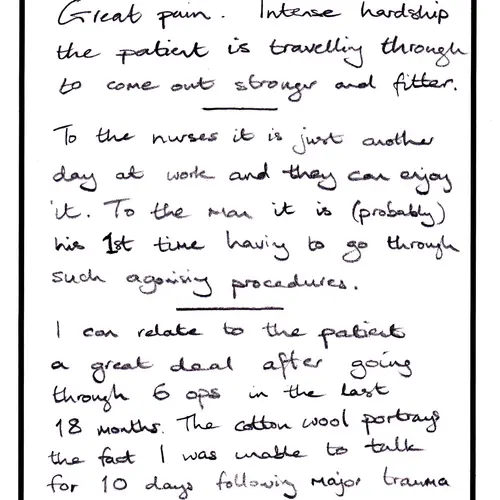 Great pain. Intense hardship
the patient is travelling through
to come out stronger and fitter.
To the nurses it is just another
day at work and they can enjoy
it. To the man it is (probably)
his 1st time having to go through
such agonising procedures.
I can relate to the patient
a great deal after going
through 6 ops in the last
18 months. The cotton wool portrays
the fact I was unable to talk
for 10 days following major trauma